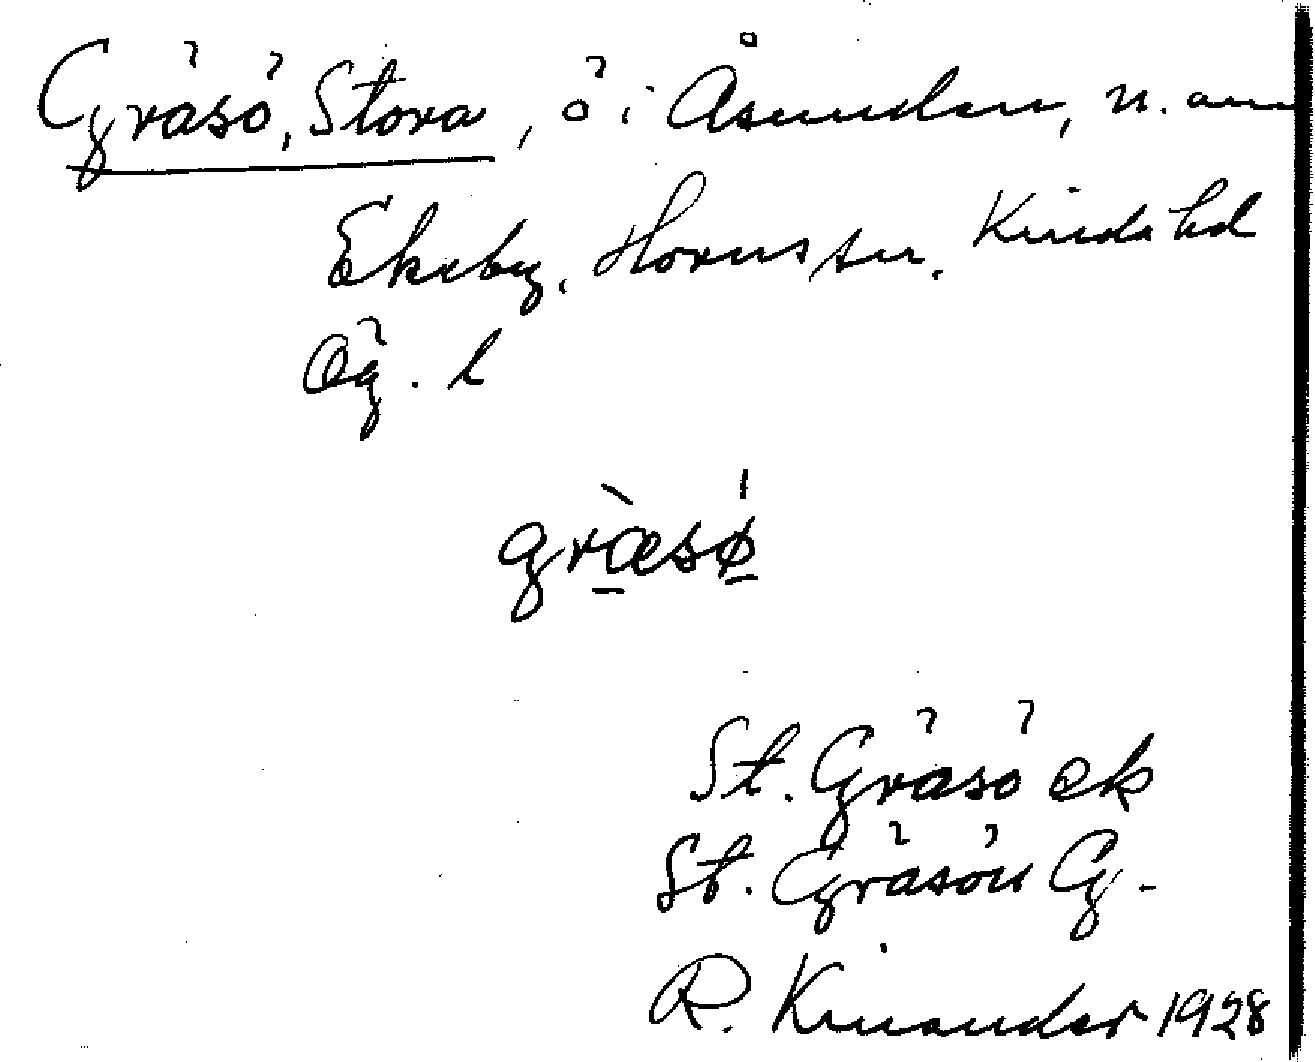 Gräsö, Stora, ö i Åsunden, n. om
Ekeby, Horns sn. Kinda hd
Ög. l
græsø
St. Gräsö ek
St. Gräsön G.
R. Kinander 1928